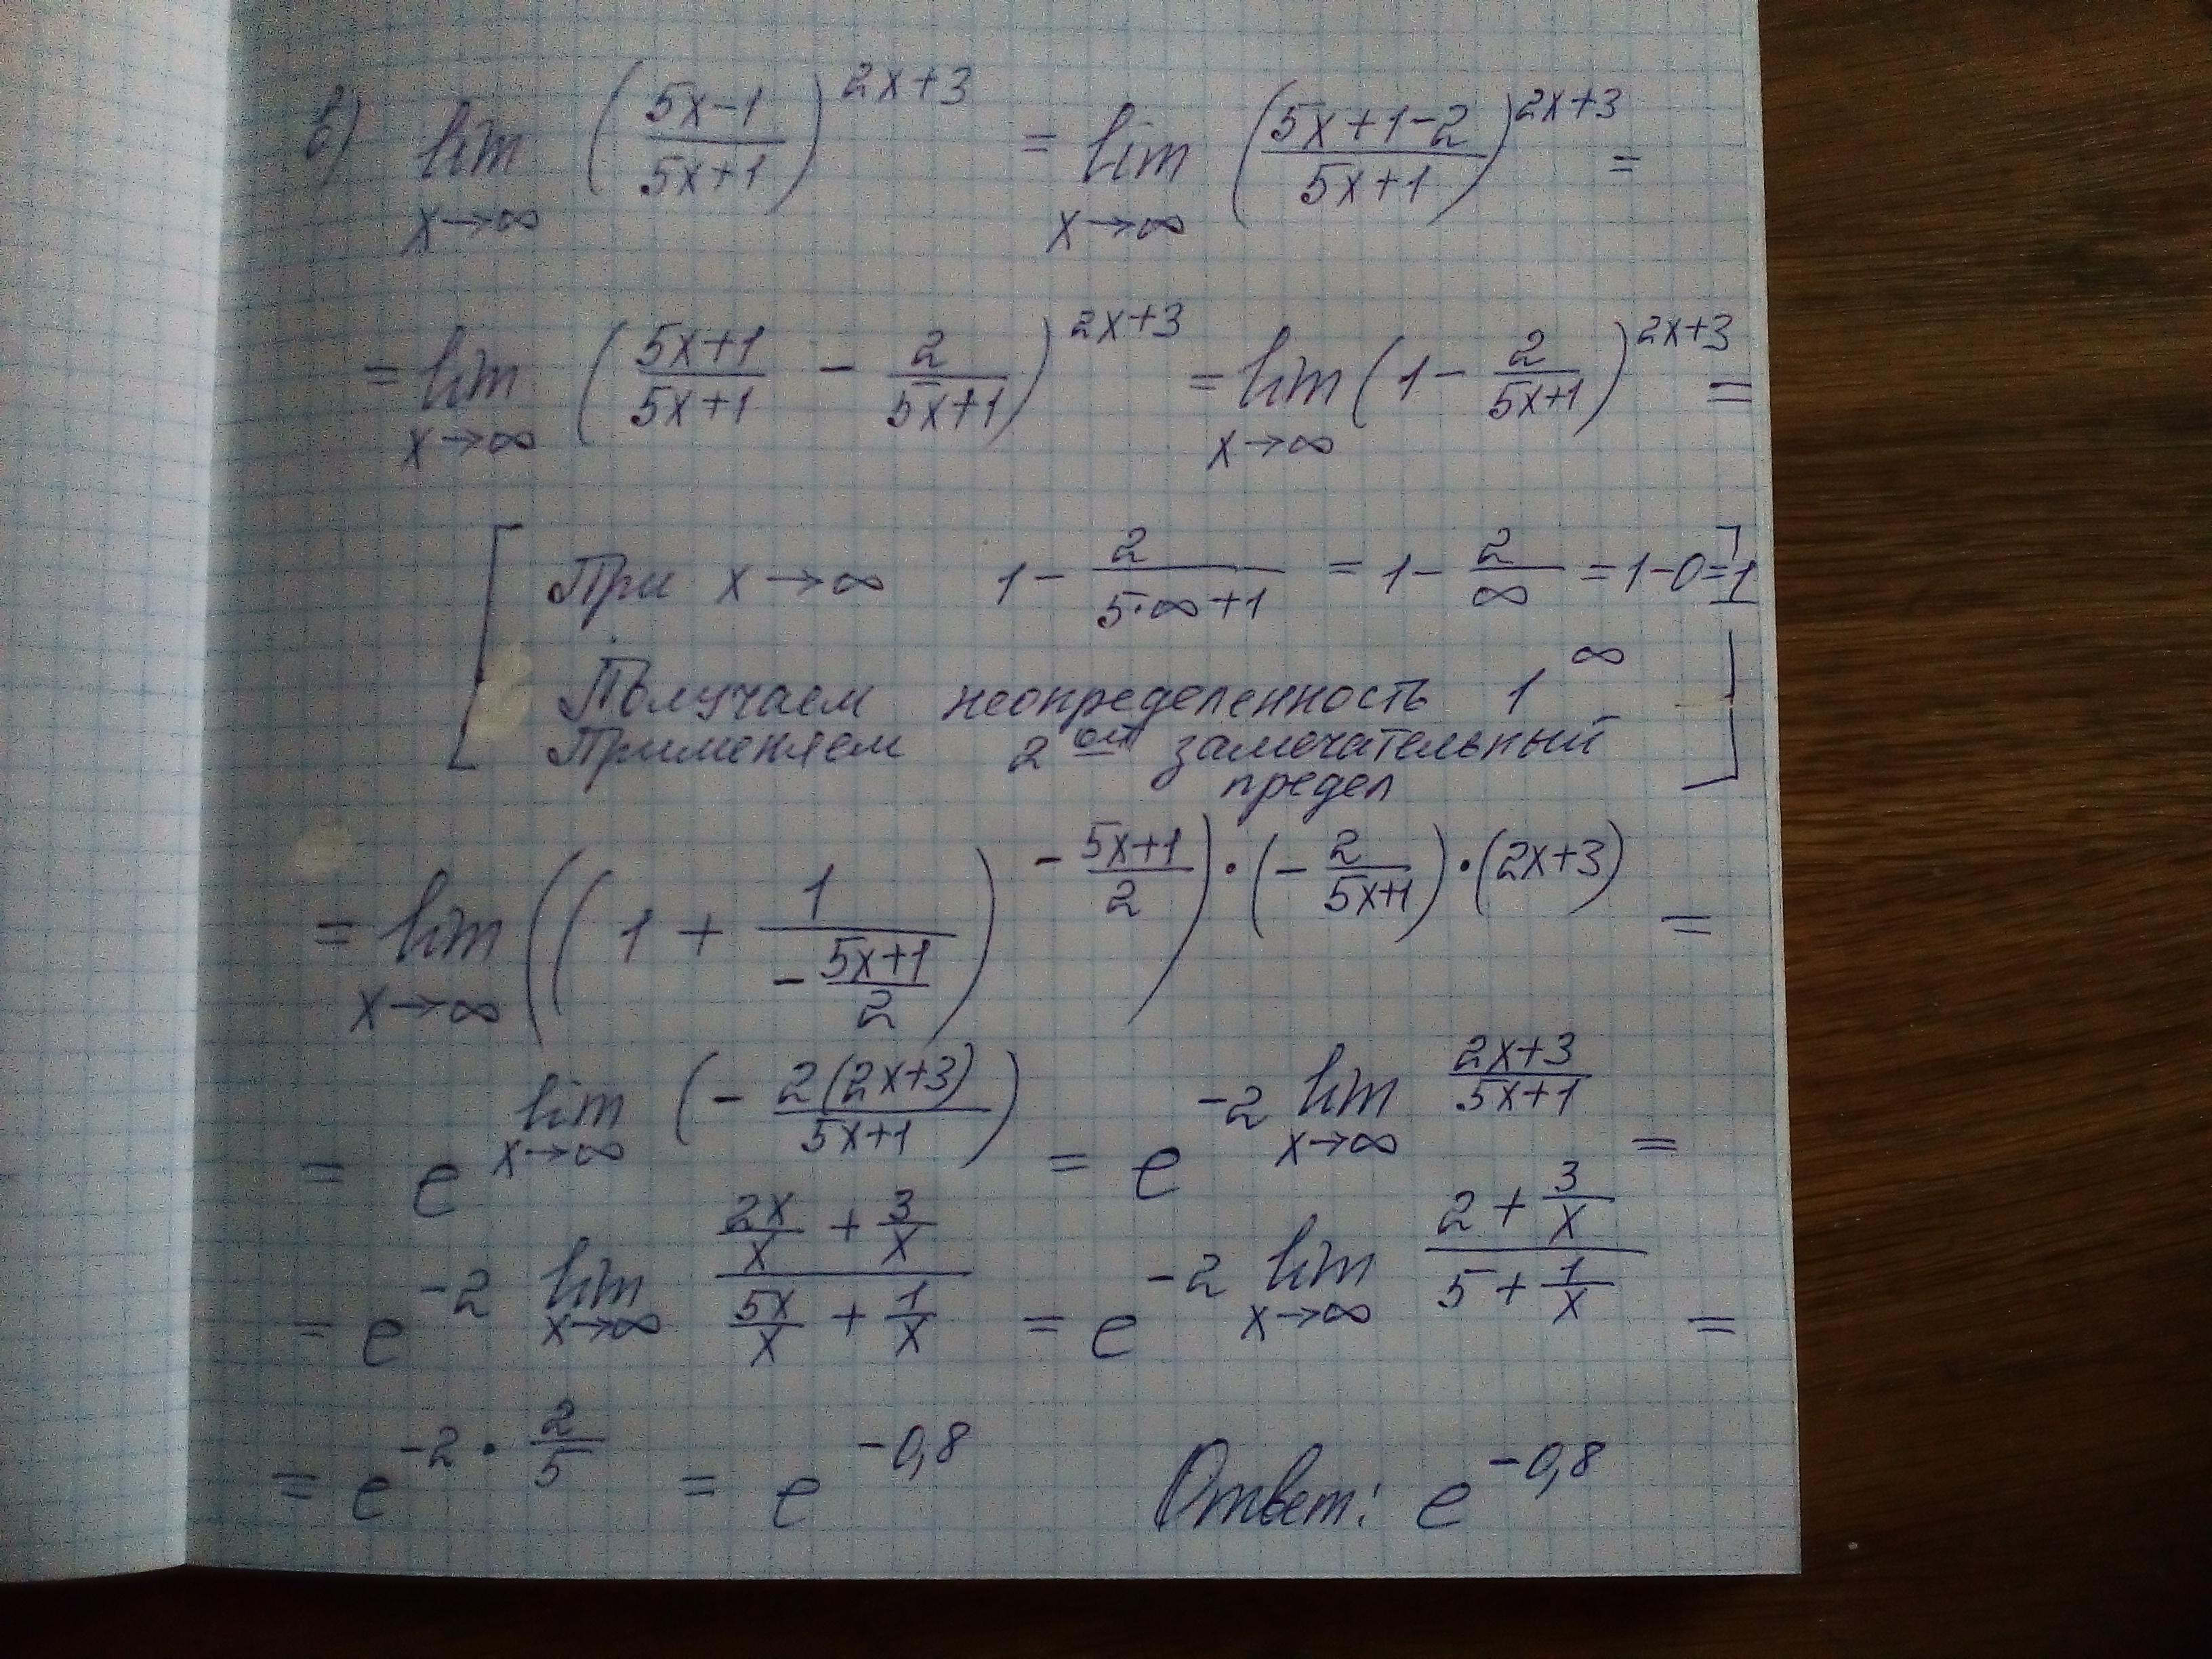 в) lim x→∞ ((5x-1)/(5x+1))^(2x+3) = lim x→∞ ((5x+1-2)/(5x+1))^(2x+3) =
= lim x→∞ ((5x+1)/(5x+1) - 2/(5x+1))^(2x+3) = lim x→∞ (1 - 2/(5x+1))^(2x+3) =
[При x→∞ 1 - 2/(5·∞+1) = 1 - 2/∞ = 1-0=1
Получаем неопределенность 1^∞
Применяем 2ой замечательный
предел]
= lim x→∞ ((1 + 1/(-(5x+1)/2))^(-(5x+1)/2))^(·(-2/(5x+1))·(2x+3)) =
= e^(lim x→∞ (-2(2x+3)/(5x+1))) = e^(-2 lim x→∞ (2x+3)/(5x+1)) =
= e^(-2 lim x→∞ (2x/x + 3/x)/(5x/x + 1/x)) = e^(-2 lim x→∞ (2 + 3/x)/(5 + 1/x)) =
= e^(-2·2/5) = e^(-0,8) Ответ: e^(-0,8)